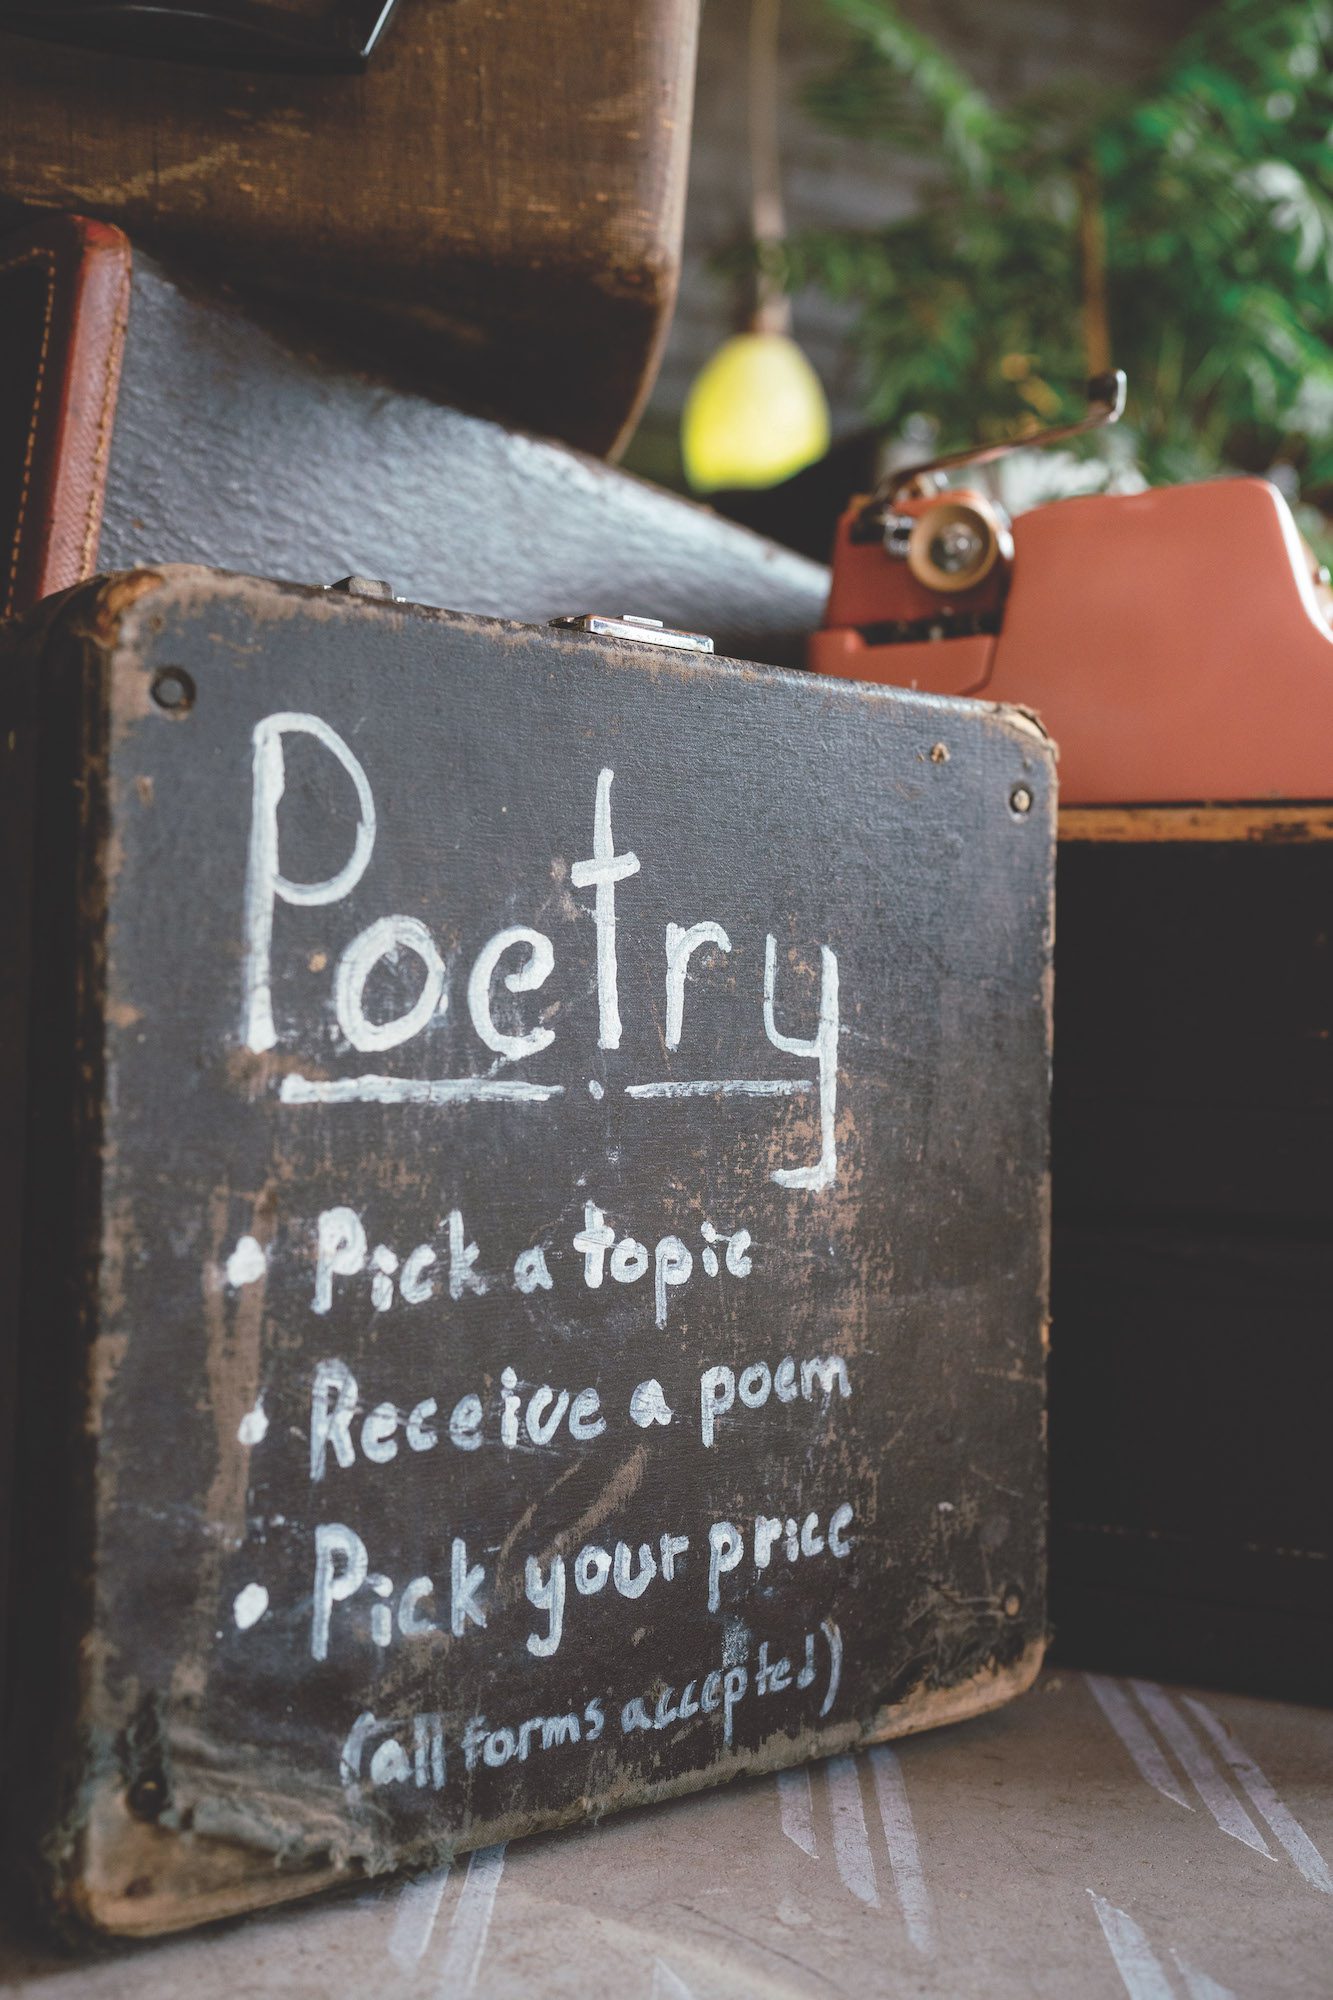 Poetry
• Pick a topic
• Receive a poem
• Pick your price
(all forms accepted)